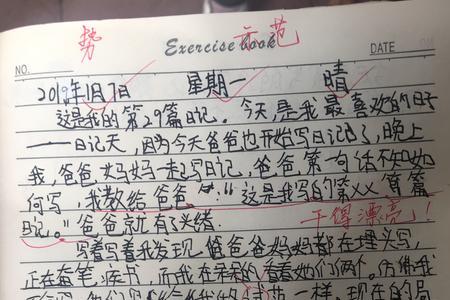 势 示范
Exercise book
NO. DATE
2019年1月7日 星期一 晴
这是我的第29篇日记。今天,是我最喜欢的日子
——日记天,因为今天爸爸也开始写日记了,晚上
我,爸爸,妈妈一起写日记,爸爸第一句话不知如
何写,我教给爸爸:"这是我写的第XX篇
日记。"爸爸就有了头绪。
干得漂亮!
写着写着我发现,爸爸妈妈都在埋头写,
正在奋笔疾书,而我在呆呆的看着她们两个。仿佛我